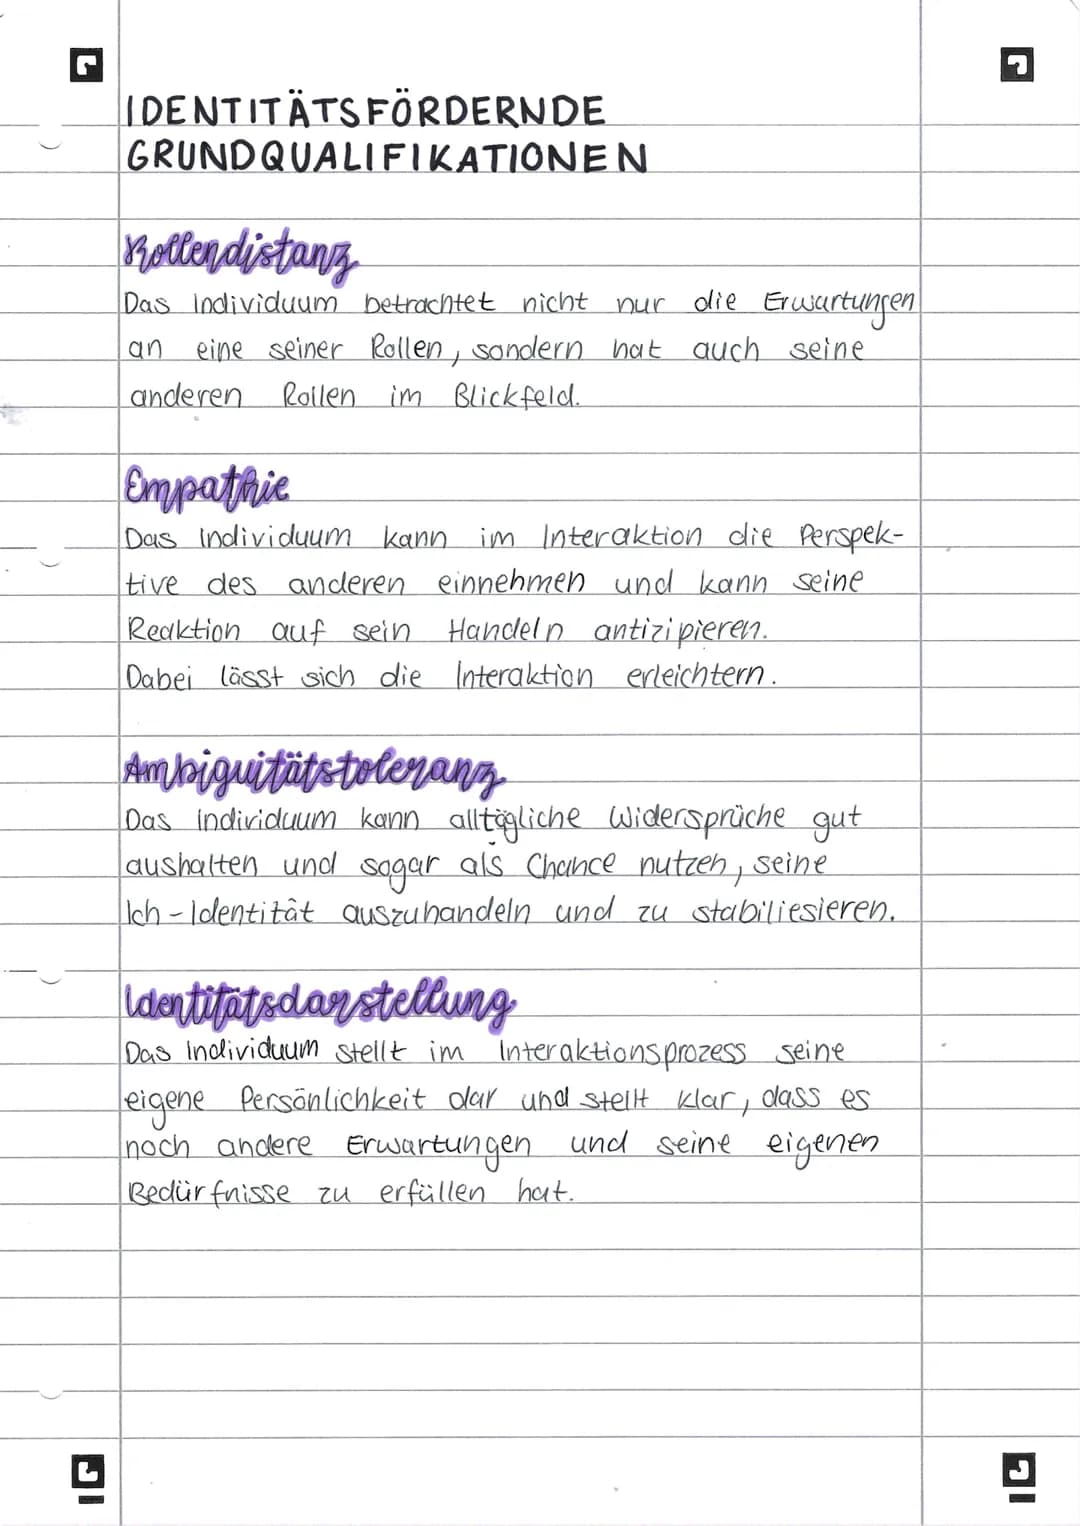 IDENTITÄTSFÖRDERNDE
GRUNDQUALIFIKATIONEN
Rollendistanz
Das Individuum betrachtet nicht nur die Erwartungen
an eine seiner Rollen, sondern hat auch seine
anderen Rollen im Blickfeld.
Empathie
Das Individuum kann im Interaktion die Perspek-
tive des anderen einnehmen und kann seine
Reaktion auf sein Handeln antizipieren.
Dabei lässt sich die Interaktion erleichtern.
Ambiguitätstoleranz
Das Individuum kann alltägliche Widersprüche gut
aushalten und sogar als Chance nutzen, seine
Ich-Identität auszuhandeln und zu stabiliesieren.
Identitätsdarstellung
Das Individuum stellt im Interaktionsprozess seine
eigene Persönlichkeit dar und stellt klar, dass es
noch andere Erwartungen und seine eigenen
Bedürfnisse zu erfüllen hat.